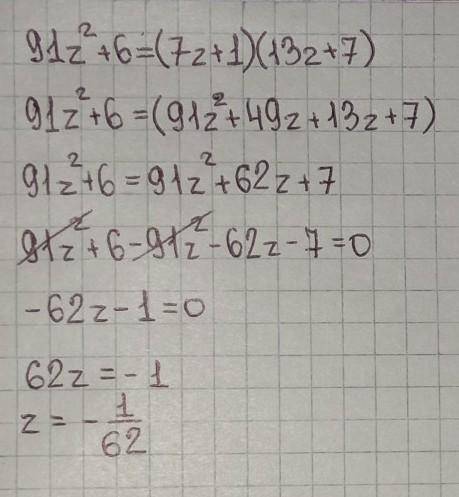 91z²+6=(7z+1)(13z+7)
91z²+6=(91z²+49z+13z+7)
91z²+6=91z²+62z+7
91z²+6-91z²-62z-7=0
-62z-1=0
62z=-1
z=-1/62